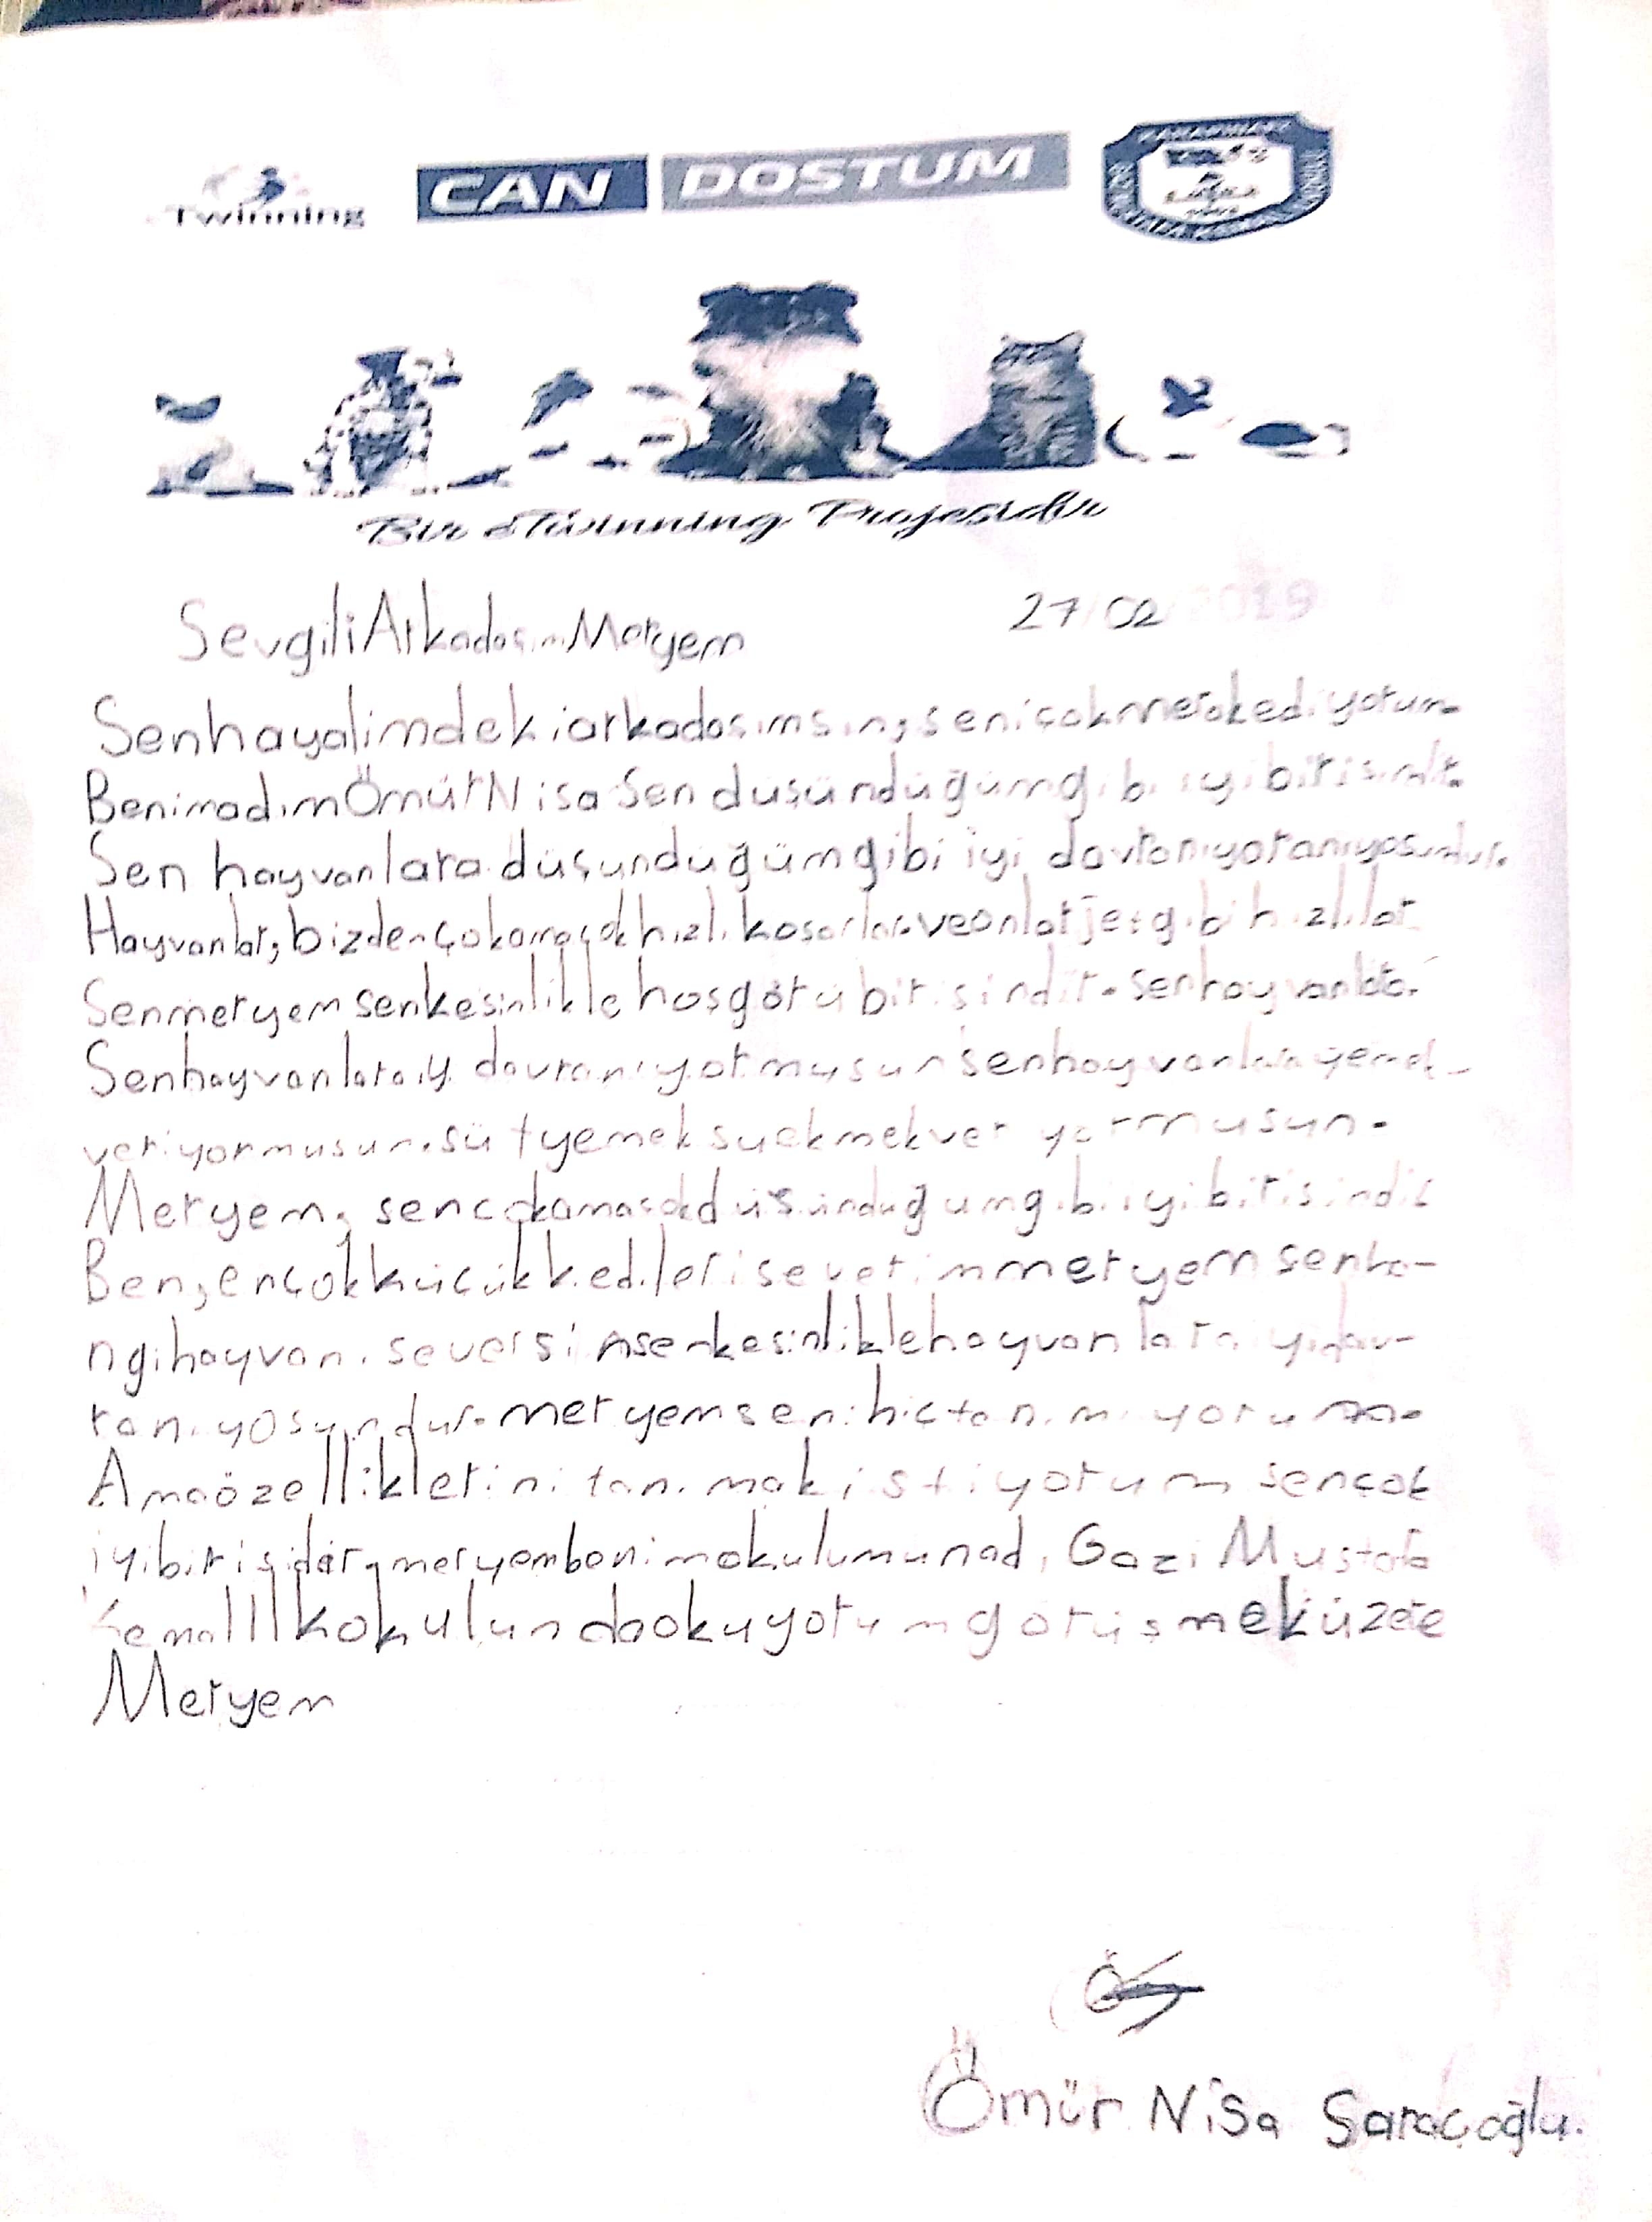 Twinning
CAN DOSTUM
Bir eTwinning Projesidir
27/02/2019
Sevgili Arkadaşım Meryem
Sen hayalimdeki arkadaşımsın, seni çok merak ediyorum.
Benim adım Ömür Nisa Sen düşündüğüm gibi iyi birisindir.
Sen hayvanlara düşundüğüm gibi iyi davranıyoranıyosundur.
Hayvanlar, bizden çok ama çok hızlı koşarlar ve onlar jet gibi hızlılar
Sen meryem sen kesinlikle hoşgörü birisindir. sen hayvanlara
Sen hayvanlara iyi davranıyormusun sen hayvanlara yemek-
veriyormusun. süt yemek su ekmek veriyormusun.
Meryem, sen çok ama çok düşündüğüm gibi iyi birisindir
Ben, en çok küçük kedileri severim meryem sen ha-
ngi hayvanı seversin sen kesinlikle hayvanlara iyi dav-
ranıyosundur. meryem seni hiç tanımıyorum.
Ama özelliklerini tanımak istiyorum sen çok
iyi birisidir, meryem benim okulumun adı Gazi Mustafa
Kemal İlkokulunda okuyorum görüşmek üzere
Meryem
Ömür Nisa Saraçoğlu.